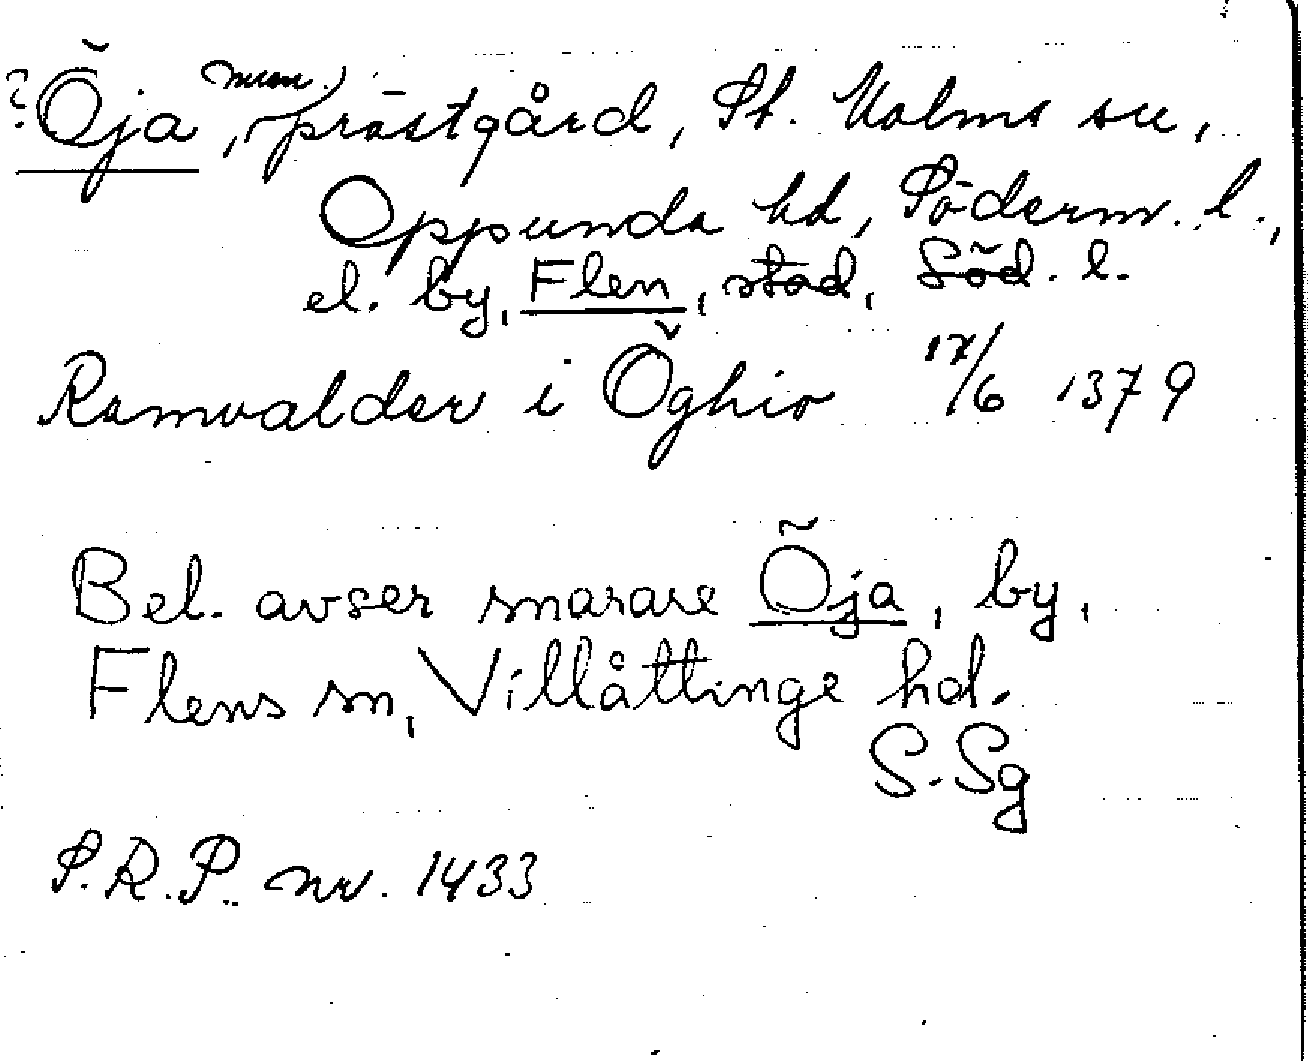 ? Öja, (num.) prästgård, St. Malms sn,
Oppunda hd, Söderm. l.,
el. by, Flen, stad, Söd. l.
Ramvalder i Öghio 17/6 1379
Bel. avser snarare Öja, by,
Flens sn, Villåttinge hd.
S. Sg
S.R.P. nr. 1433